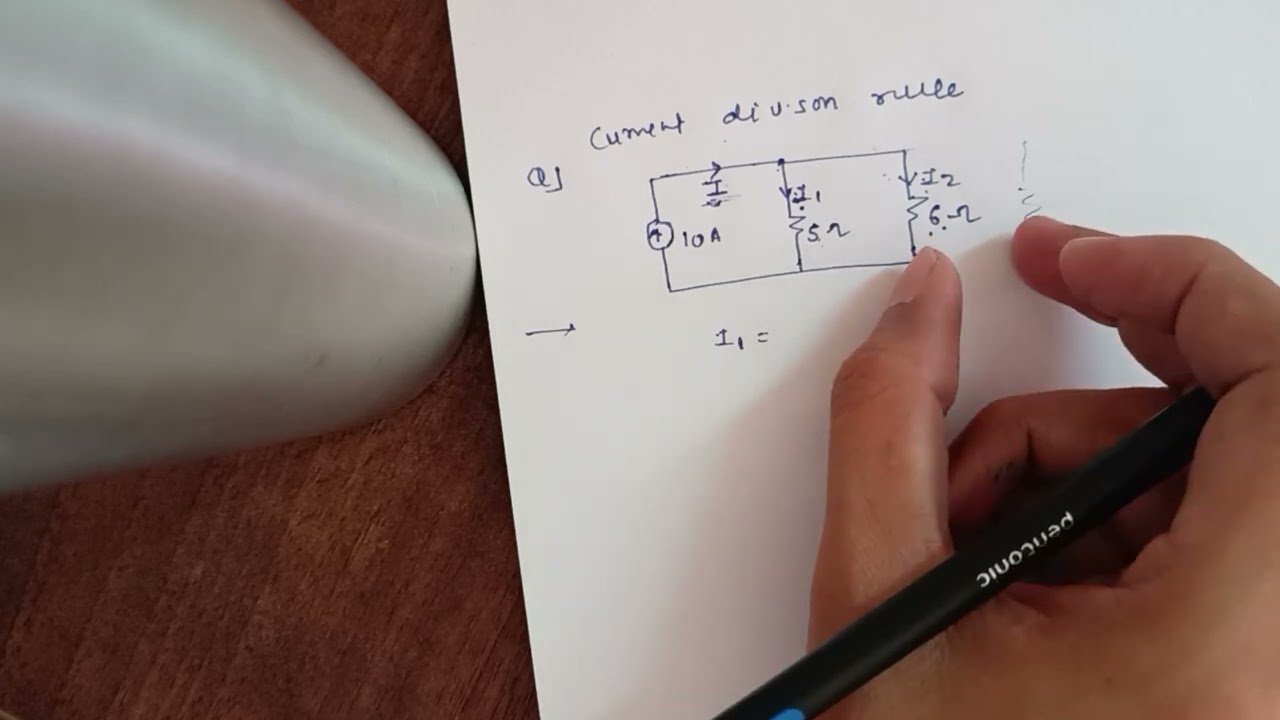 Current divison rule
Q]
I
I1
I2
10A
5Ω
6Ω
I1 =
pentonic